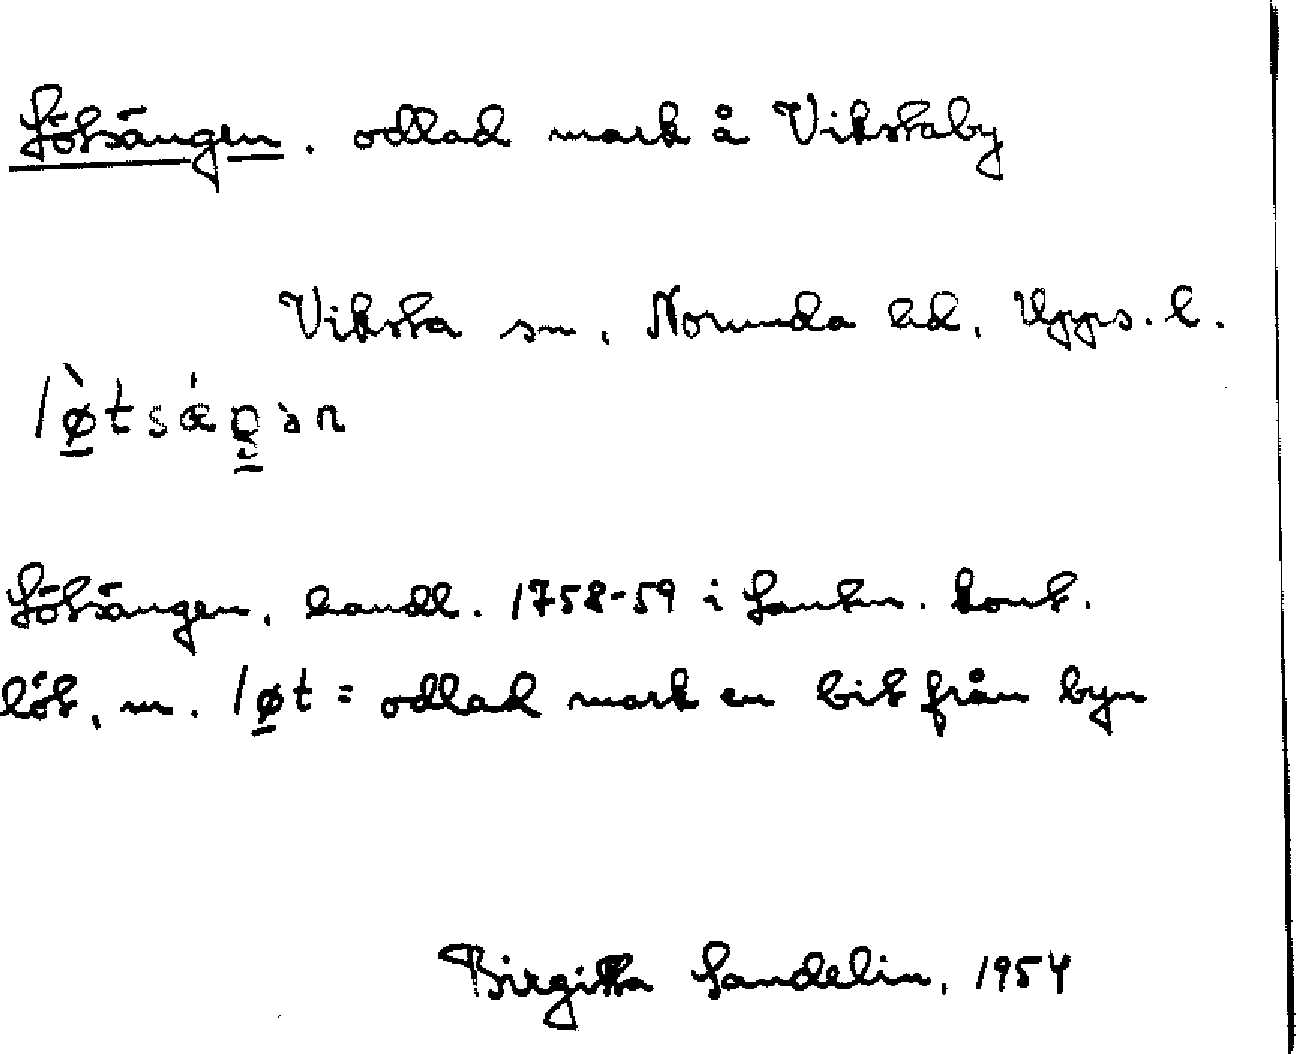 Lötsängen. odlad mark å Vikstaby
Viksta sn, Norunda hd, Upps. l.
lø̀tsǽŋən
Lötsängen, handl. 1758-59 i Lantm. kont.
löt, m. løt = odlad mark en bit från byn
Birgitta Sandelin, 1954